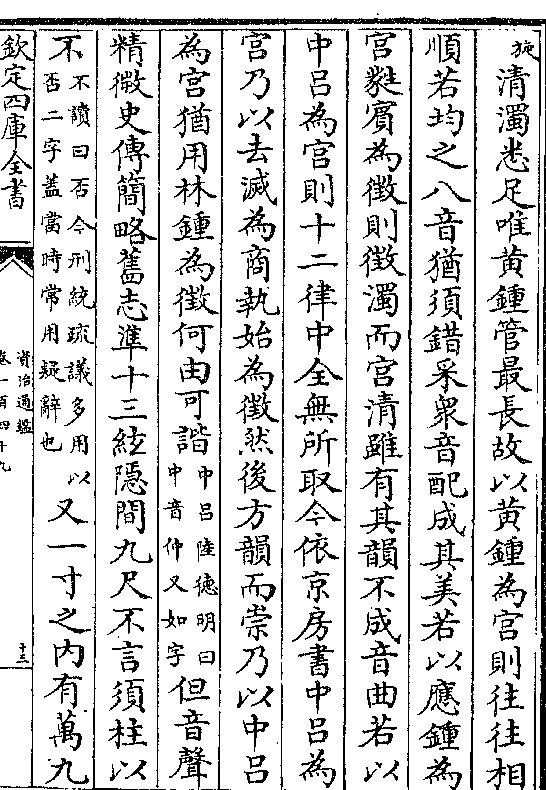 旋
清濁悉足唯黃鍾管最長故以黃鍾為宮則往往相
順若均之八音猶須錯采衆音配成其美若以應鍾為
宮蕤賓為徵則徵濁而宮清雖有其韻不成音曲若以
中呂為宮則十二律中全無所取今依京房書中呂為
宮乃以去滅為商執始為徵然後方韻而崇乃以中呂
為宮猶用林鍾為徵何由可諧中呂陸德明曰中音仲又如字但音聲
精微史傳簡略舊志準十三絃隱間九尺不言須柱以
不不讀曰否今刑統疏議多用以否二字蓋當時常用疑辭也又一寸之內有萬九
欽定四庫全書
資治通鑑
卷一百四十九
十三